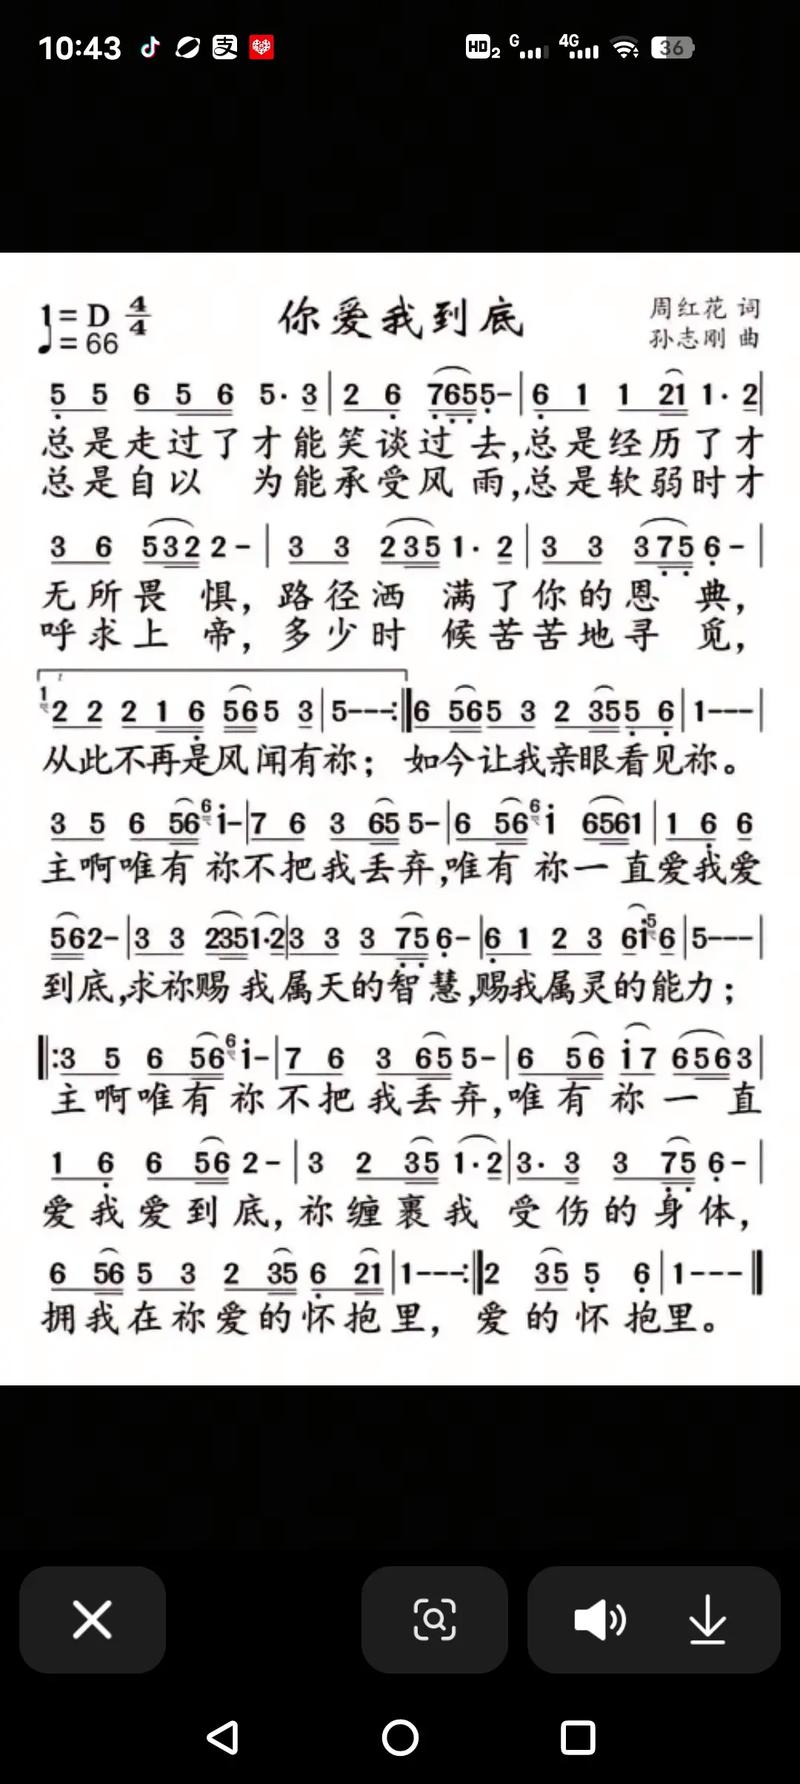 10:43 支 HD2 G 4G 36
1=D 4/4
你爱我到底
周红花 词
♩=66
孙志刚 曲
5 5 6 5 6 5· 3 | 2 6 7655- | 6 1 1 21 1· 2 |
总是走过了才能笑谈过去,总是经历了才
总是自以 为能承受风雨,总是软弱时才
3 6 532 2- | 3 3 235 1· 2 | 3 3 375 6- |
无所畏惧,路径洒满了你的恩典,
呼求上帝,多少时候苦苦地寻觅,
2 2 2 1 6 565 3 | 5---:‖ 6 565 3 2 355 6 | 1--- |
从此不再是风闻有祢；如今让我亲眼看见祢。
3 5 6 56 6 i- | 7 6 3 65 5- | 6 56 6 i 6561 | 1 6 6
主啊唯有祢不把我丢弃,唯有祢一直爱我爱
562- | 3 3 2351·2 | 3 3 3 75 6- | 6 1 2 3 6i 5 6 | 5--- |
到底,求祢赐我属天的智慧,赐我属灵的能力；
‖:3 5 6 56 6 i- | 7 6 3 65 5- | 6 56 i7 6563 |
主啊唯有祢不把我丢弃,唯有祢一直
1 6 6 56 2- | 3 2 35 1·2 | 3· 3 3 75 6- |
爱我爱到底,祢缠裹我受伤的身体,
6 56 5 3 2 35 6 21 | 1---:‖ 2 35 5 6 | 1--- ‖
拥我在祢爱的怀抱里,爱的怀抱里。